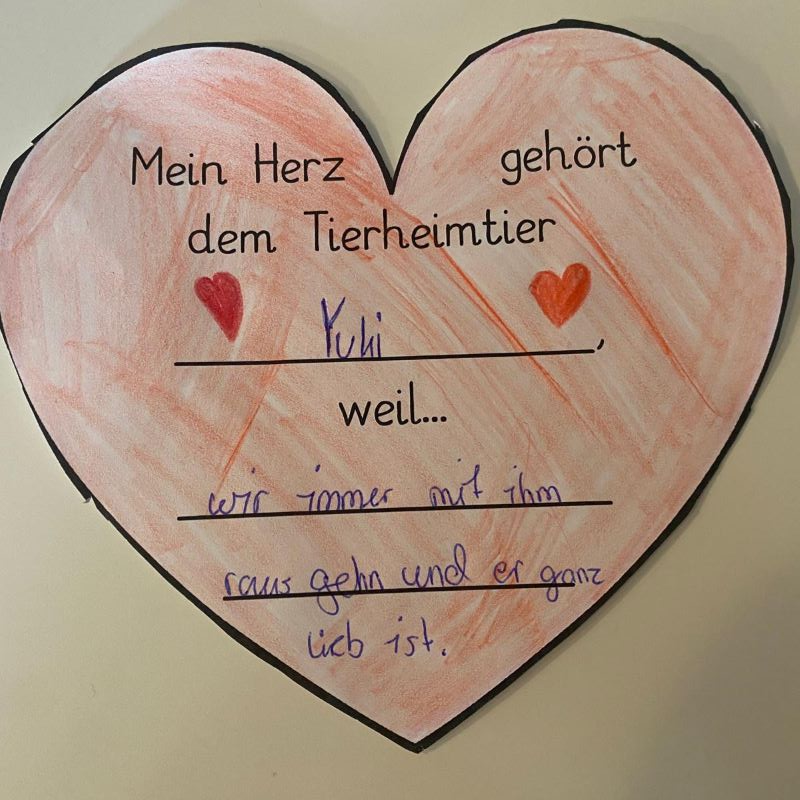 Mein Herz gehört
dem Tierheimtier
Yuki,
weil...
wir immer mit ihm
raus gehn und er ganz
lieb ist.